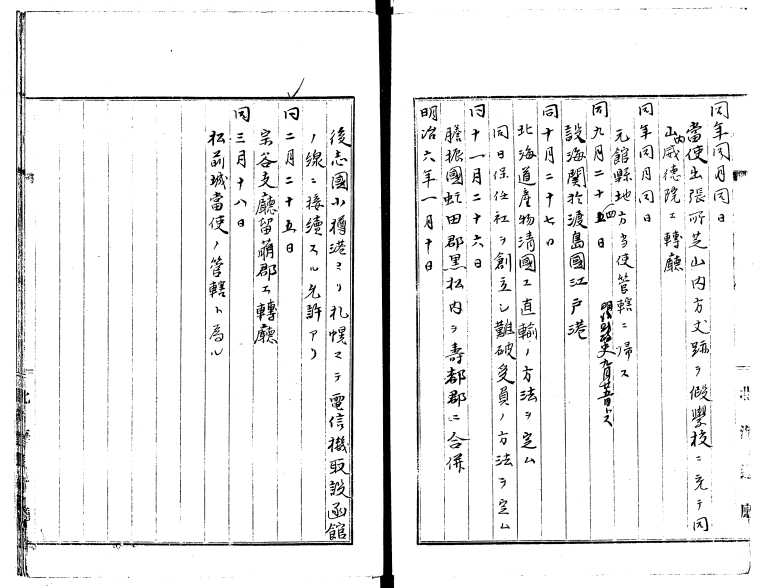 同年同月同日
當使出張所芝山内方丈跡ヲ假學校ニ充テ同
山内威德院エ轉廳
同年同月同日
元館縣地方當使管轄ニ帰ス
同九月二十五日
四
九月廿五日トス
設海關於渡島國江戸港
同十月二十七日
北海道産物清國エ直輸ノ方法ヲ定ム
同日保任社ヲ創立シ難破受負ノ方法ヲ定ム
同十一月二十六日
膽振國虻田郡黒松内ヲ壽都郡ニ合併
明治六年一月十日
後志國小樽港ヨリ札幌マテ電信機取設函館
ノ線ニ接續スル允許アリ
同二月二十五日
宗谷支廳留萌郡エ轉廳
同三月十八日
松前城當使ノ管轄ト爲ル